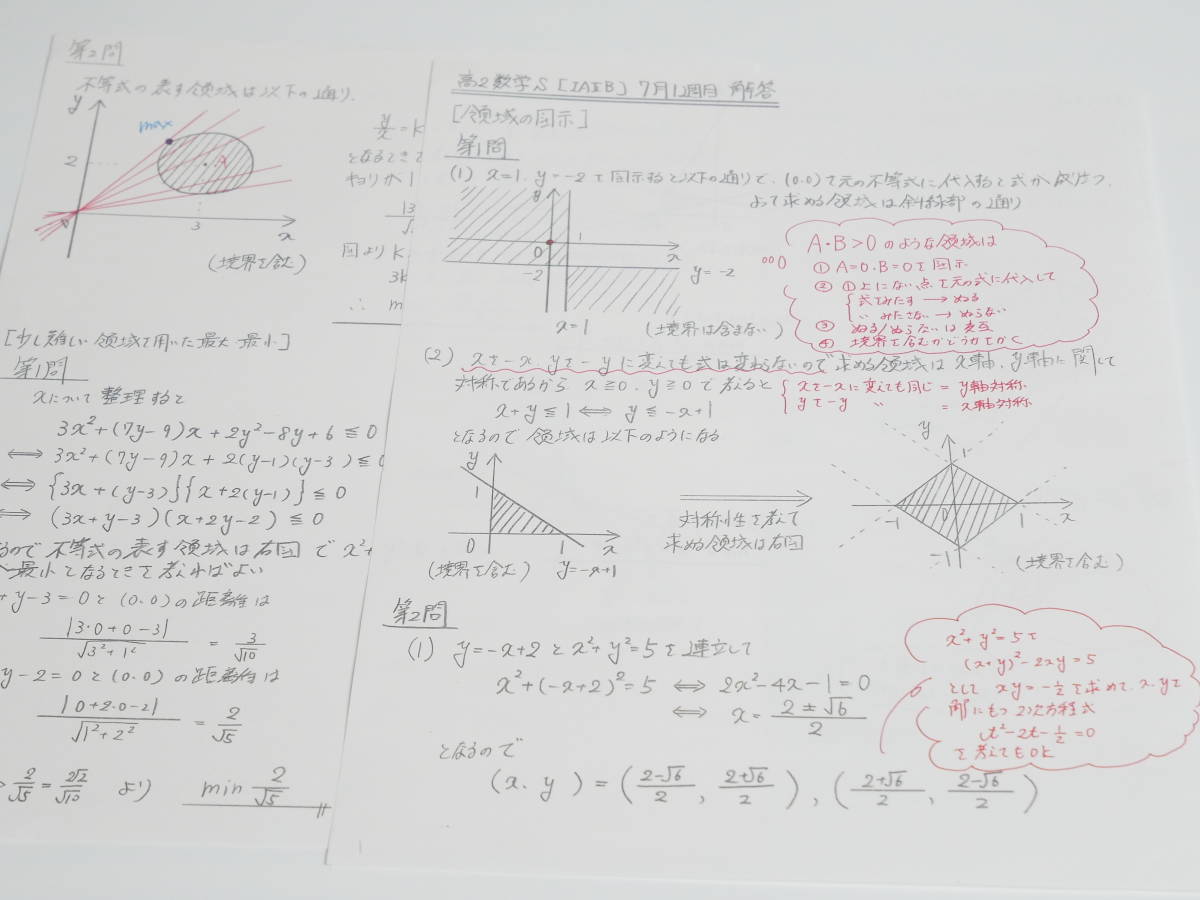 第2問
不等式の表す領域は以下の通り.
y
max
2
A
0
3
x
(境界を含む)
y/x = k
となるときで
図より k
∴ m
[少し難しい領域を用いた最大・最小]
第1問
xについて整理すると
3x²+(7y-9)x+2y²-8y+6≦0
⟺ 3x²+(7y-9)x+2(y-1)(y-3)≦0
⟺ {3x+(y-3)}{x+2(y-1)}≦0
⟺ (3x+y-3)(x+2y-2)≦0
なので不等式の表す領域は右図で x²+
最小となるときを考えればよい
+y-3=0と(0.0)の距離は
|3・0+0-3|/√(3²+1²) = 3/√10
y-2=0と(0.0)の距離は
|0+2・0-2|/√(1²+2²) = 2/√5
> 2/√5 = 2√2/√10 より min 2/√5
高2数学S [ⅠAⅡB] 7月1週目 解答
[領域の図示]
第1問
(1) x=1. y=-2を図示すると以下の通りで. (0.0)で元の不等式に代入すると式が成立つ.
よって求める領域は斜線部の通り
y
0
1
x
-2
y=-2
x=1
(境界は含まない)
A・B>0のような領域は
① A=0. B=0を図示
② ①上にない点を元の式に代入して
式をみたす → ぬる
〃 みたさない → ぬらない
③ ぬる/ぬらないは交互
④ 境界を含むかどうかをかく
(2) xを-x. yを-yに変えても式は変わらないので求める領域はx軸. y軸に関して
対称であるから x≧0. y≧0で考えると
xを-xに変えても同じ = y軸対称.
yを-y 〃 = x軸対称.
x+y≦1 ⟺ y≦-x+1
となるので領域は以下のようになる
y
1
0
1
x
(境界を含む) y=-x+1
対称性を考えて
求める領域は右図
y
1
-1
0
1
x
-1
(境界を含む)
第2問
(1) y=-x+2とx²+y²=5を連立して
x²+(-x+2)²=5 ⟺ 2x²-4x-1=0
⟺ x=(2±√6)/2
となるので
(x. y) = ((2-√6)/2, (2+√6)/2), ((2+√6)/2, (2-√6)/2)
x²+y²=5を
(x+y)²-2xy=5
として xy=-1/2を求めて. x. yを
解にもつ2次方程式
t²-2t-1/2=0
を考えてもOK